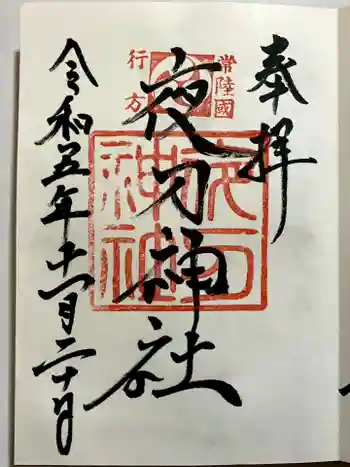 奉拝
常陸國
行方
夜刀神社
夜刀神社
令和五年十一月二十日